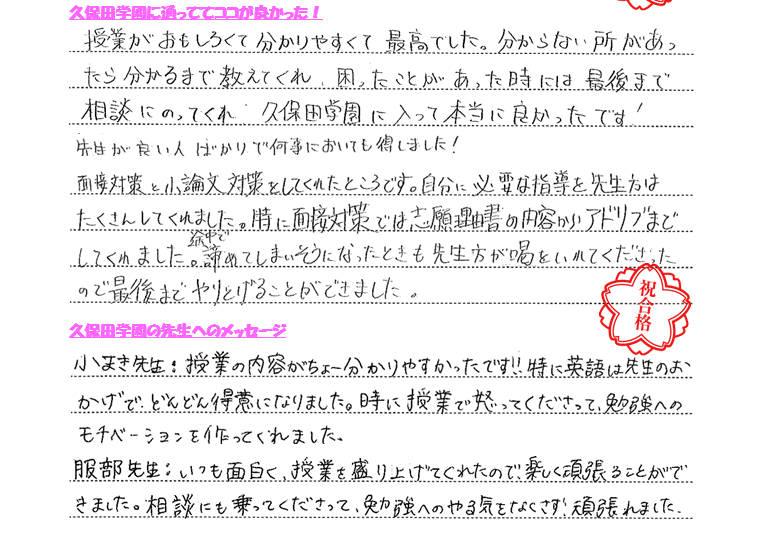 久保田学園に通っててココが良かった！
授業がおもしろくて分かりやすくて最高でした。分からない所があっ
たら分かるまで教えてくれ、困ったことがあった時には最後まで
相談にのってくれ 久保田学園に入って本当に良かったです！
先生が良い人ばかりで何事においても得しました！
面接対策と小論文対策をしてくれたところです。自分に必要な指導を先生方は
たくさんしてくれました。特に面接対策では志願理由書の内容からアドリブまで
してくれました。途中で諦めてしまいそうになったときも先生方が喝をいれてくださった
ので最後までやりとげることができました。
祝合格
久保田学園の先生へのメッセージ
小まき先生：授業の内容がちょー分かりやすかったです!!特に英語は先生のお
かげで、どんどん得意になりました。時に授業で怒ってくださって、勉強への
モチベーションを作ってくれました。
服部先生：いつも面白く、授業を盛り上げてくれたので楽しく頑張ることがで
きました。相談にも乗ってくださって、勉強へのやる気をなくさず頑張れました。